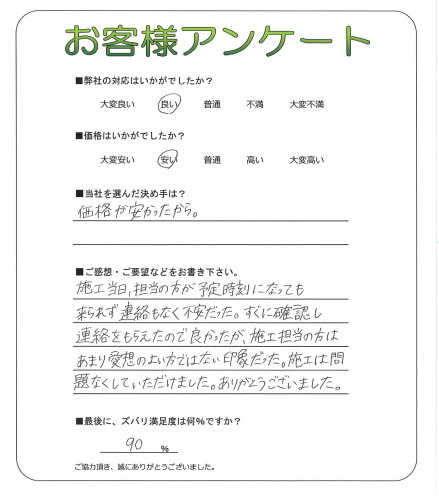 お客様アンケート
■弊社の対応はいかがでしたか？
大変良い 良い 普通 不満 大変不満
■価格はいかがでしたか？
大変安い 安い 普通 高い 大変高い
■当社を選んだ決め手は？
価格が安かったから。
■ご感想・ご要望などをお書き下さい。
施工当日、担当の方が予定時刻になっても
来られず連絡もなく不安だった。すぐに確認し
連絡をもらえたので良かったが、施工担当の方は
あまり愛想のよい方ではない印象だった。施工は問
題なくしていただけました。ありがとうございました。
■最後に、ズバリ満足度は何％ですか？
90 ％
ご協力頂き、誠にありがとうございました。